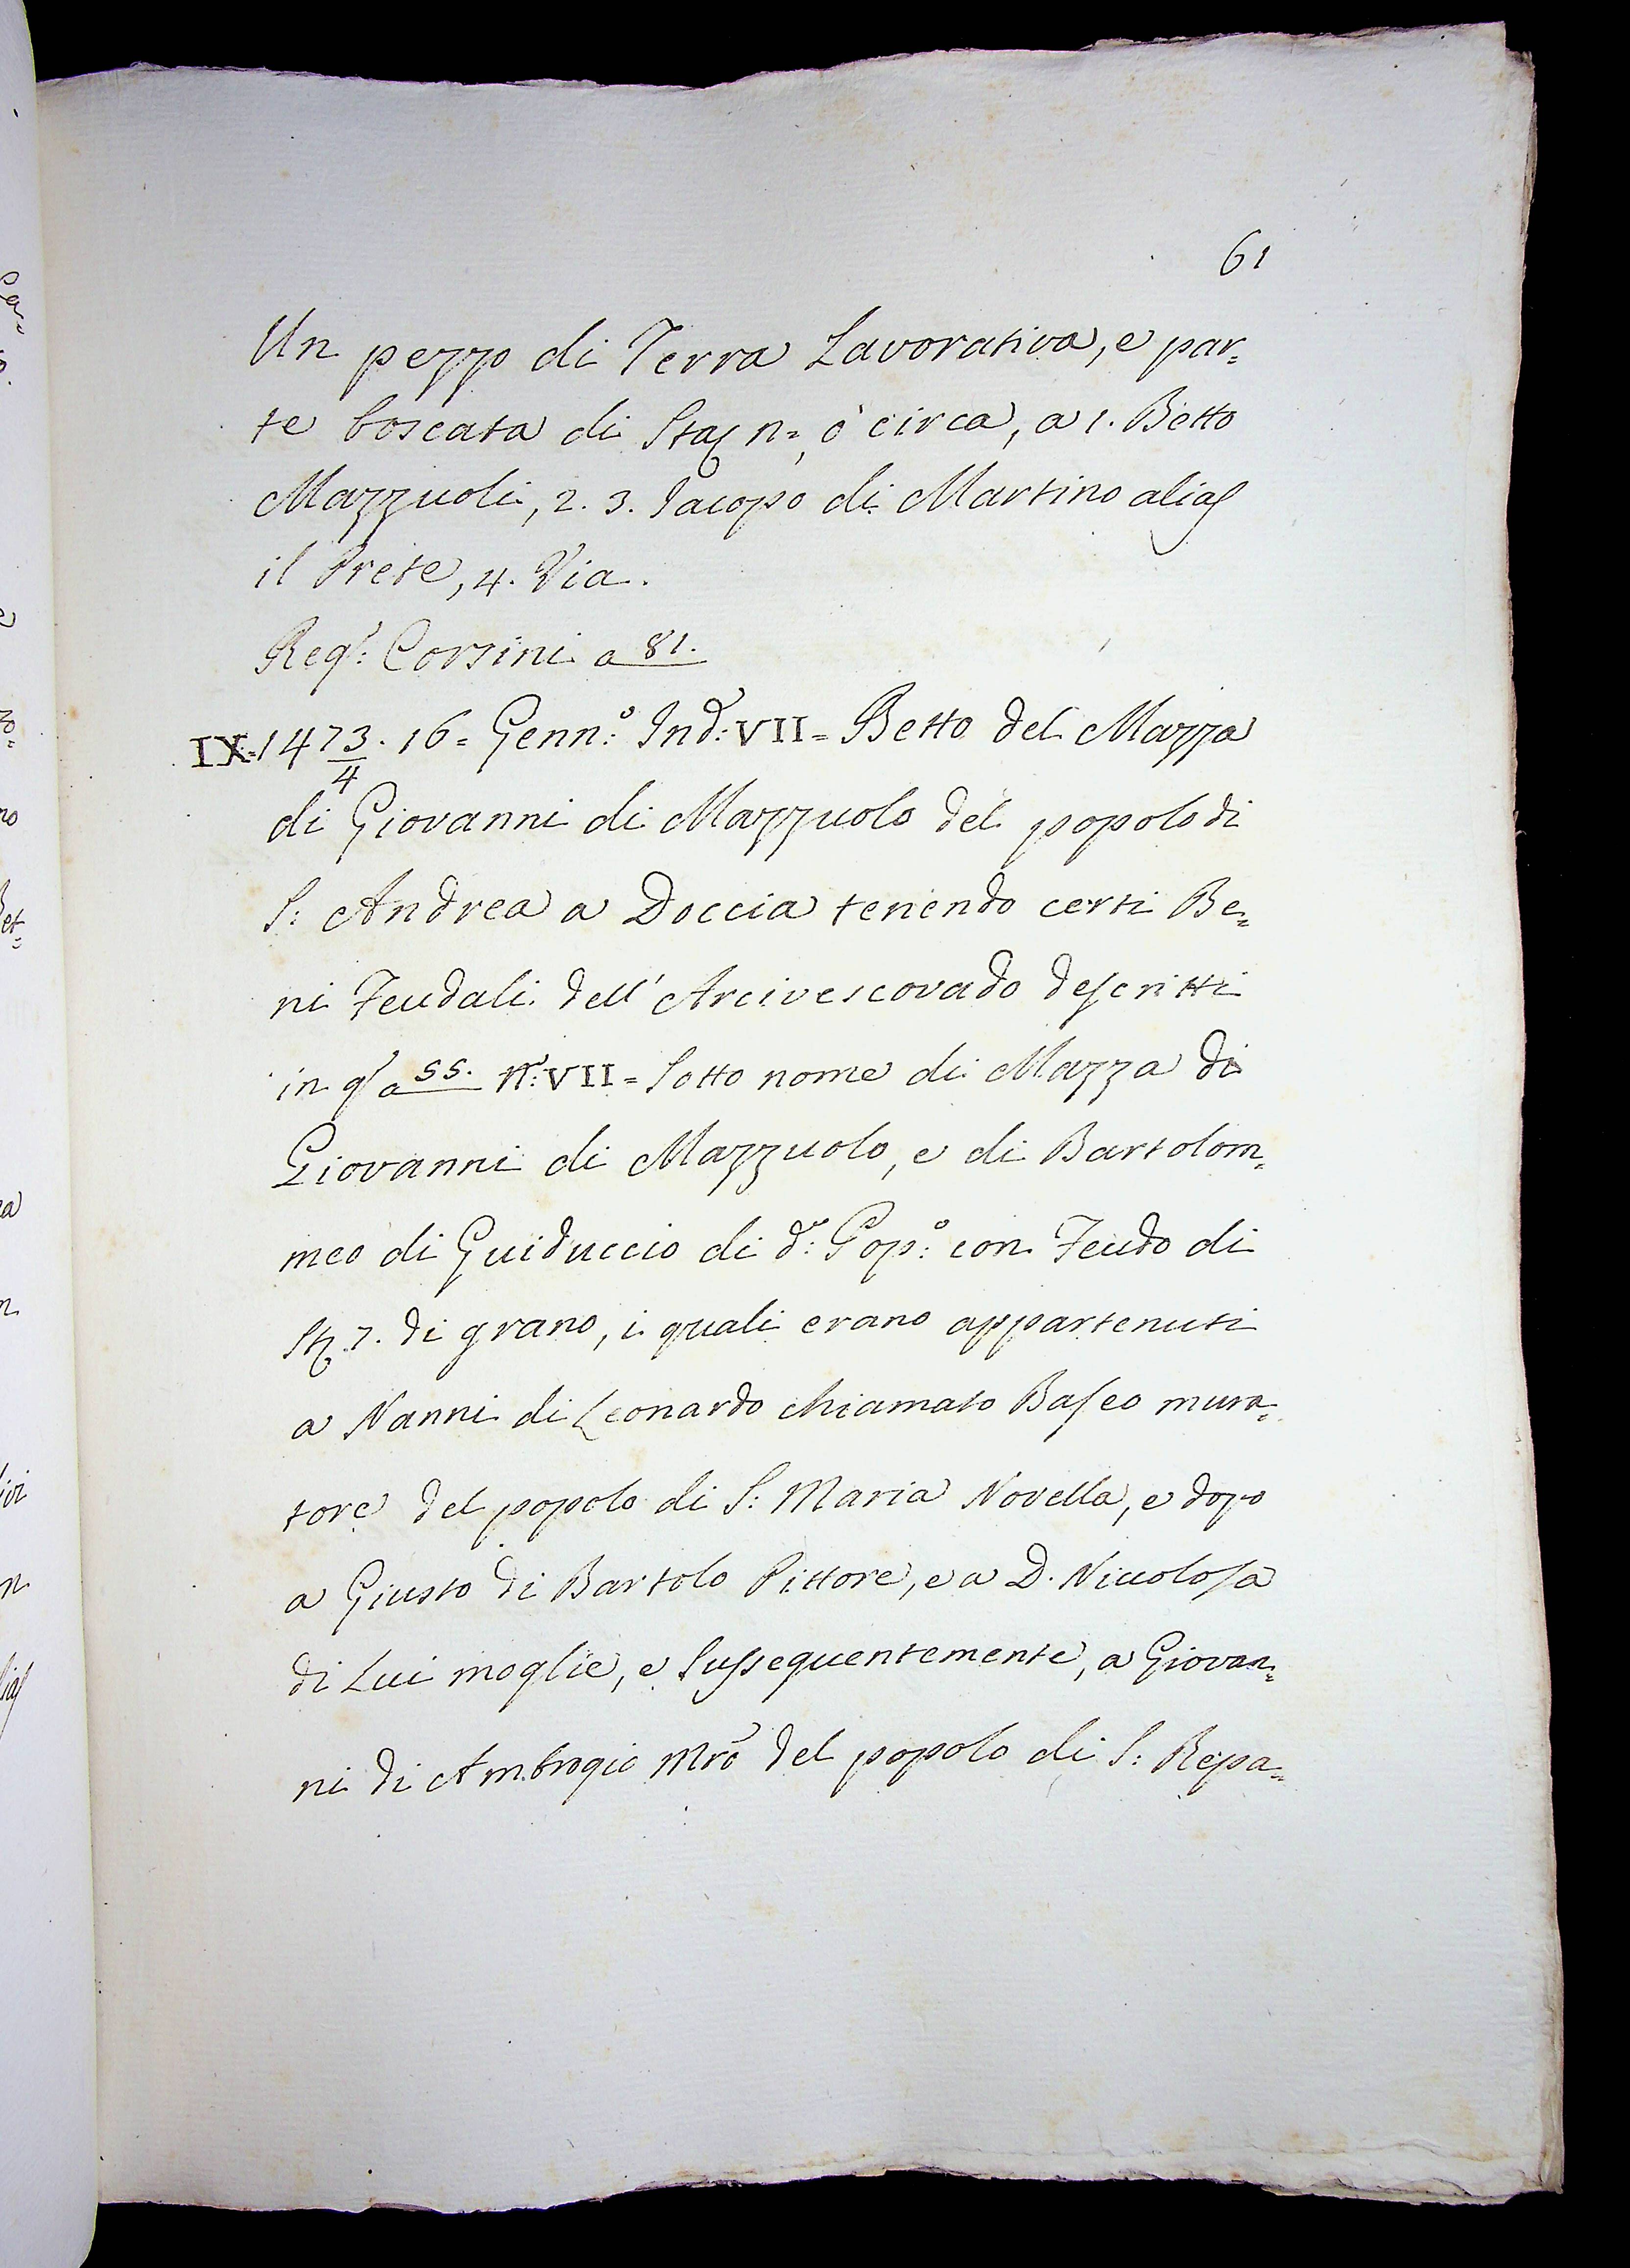 61
Un pezzo di Terra Lavorativa, e par=
te boscata di Staj n=, o circa, a 1. Betto
Mazzuoli, 2. 3. Jacopo di Martino alias
il Prete, 4. Via.
Reg: Corsini a 81.
IX= 1473/4. 16= Genn:o Ind: VII= Betto del Mazza
di Giovanni di Mazzuolo del popolo di
S: Andrea a Doccia tenendo certi Be=
ni Feudali dell' Arcivescovado descritti
in q a 55. N: VII= Sotto nome di Mazza di
Giovanni di Mazzuolo, e di Bartolom=
meo di Guiduccio di d: Pop:o con Feudo di
7. di grano, i quali erano appartenuti
a Nanni di Leonardo chiamato Baseo mura=
tore del popolo di S: Maria Novella, e dopo
a Giusto di Bartolo Pittore, e a D. Niccolosa
di Lui moglie, e Sussequentemente, a Giovan=
ni di Ambrogio Mro del popolo di S: Repa=